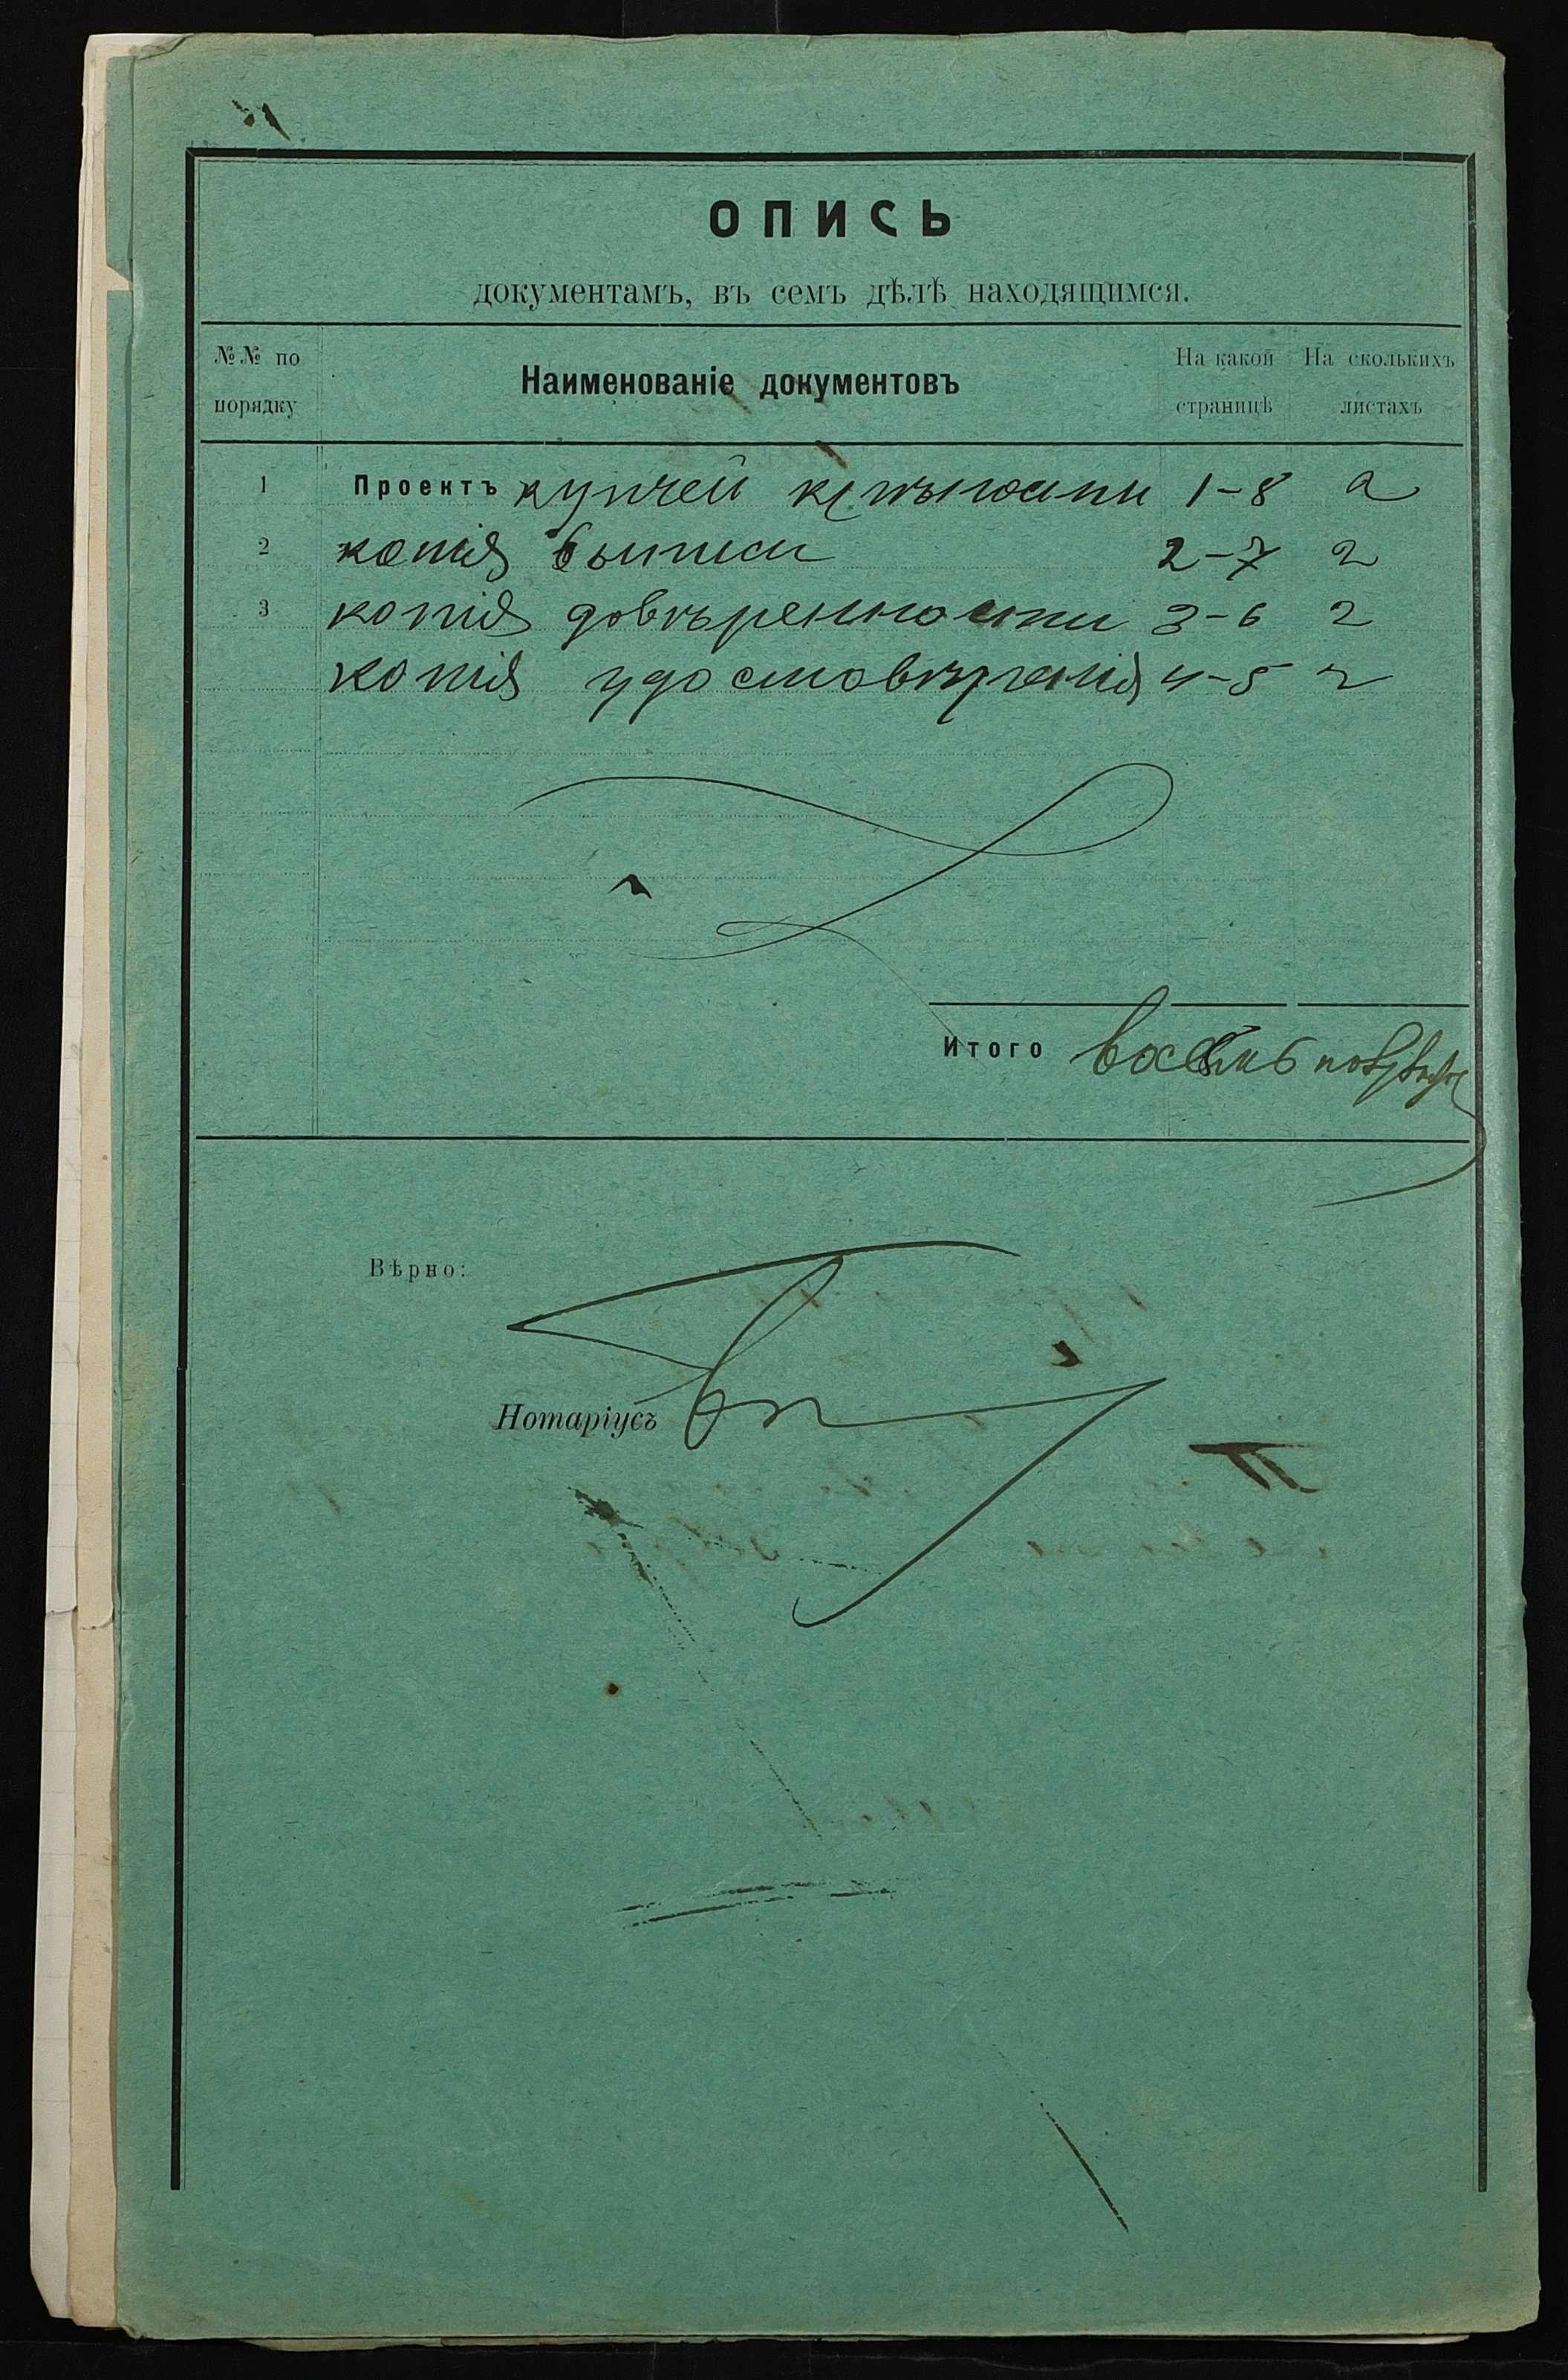 ОПИСЬ
документамъ, въ семъ дѣлѣ находящимся.
№№ по порядку Наименованіе документовъ На какой страницѣ На сколькихъ листахъ
1 Проектъ купчей крѣпости 1-8 2
2 копія выписи 2-7 2
3 копія довѣренности 3-6 2
копія удостовѣренія 4-5 2
Итого восемь
Вѣрно:
Нотаріусъ